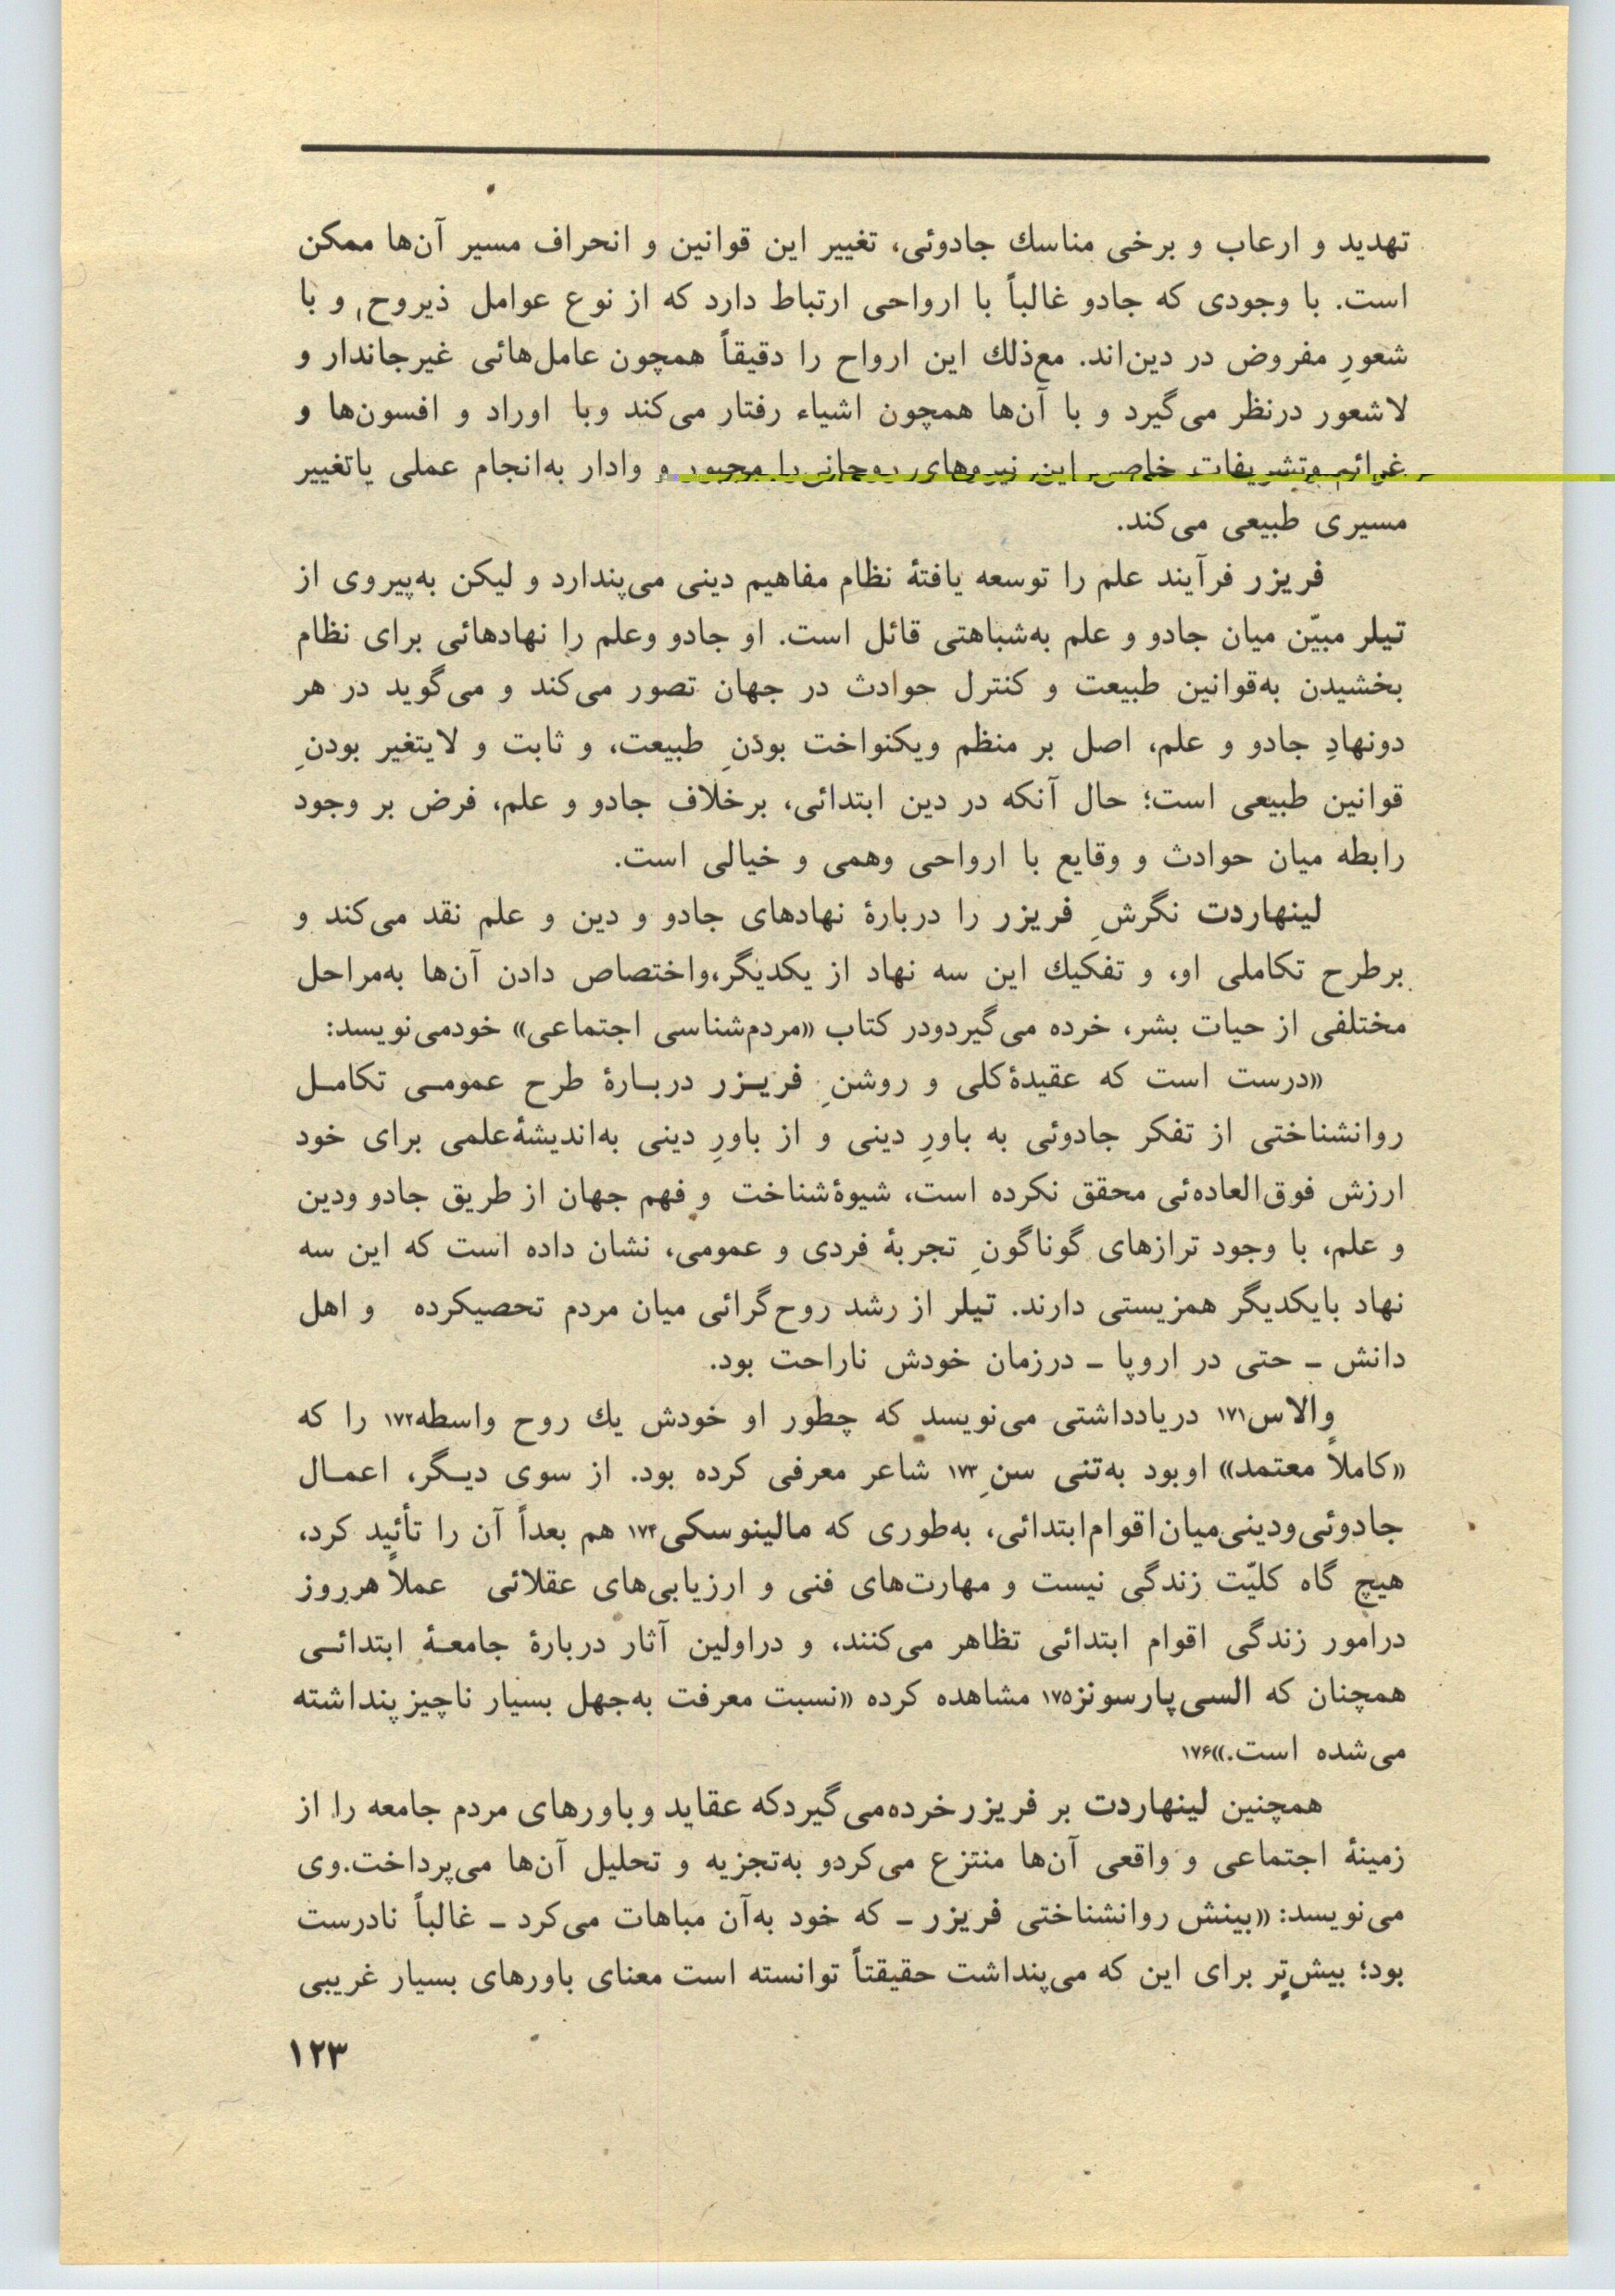 تهدید و ارعاب و برخی مناسك جادوئی، تغییر این قوانین و انحراف مسیر آن‌ها ممکن
است. با وجودی که جادو غالباً با ارواحی ارتباط دارد که از نوع عوامل ذیروح و با
شعورِ مفروض در دین‌اند. مع‌ذلك این ارواح را دقیقاً همچون عامل‌هائی غیرجاندار و
لاشعور درنظر می‌گیرد و با آن‌ها همچون اشیاء رفتار می‌کند وبا اوراد و افسون‌ها و
غرائم وتشریفات خاص این نیروهای روحانی را مجبور و وادار به‌انجام عملی یاتغییر
مسیری طبیعی می‌کند.
فریزر فرآیند علم را توسعه یافتهٔ نظام مفاهیم دینی می‌پندارد و لیکن به‌پیروی از
تیلر مبیّن میان جادو و علم به‌شباهتی قائل است. او جادو وعلم را نهادهائی برای نظام
بخشیدن به‌قوانین طبیعت و کنترل حوادث در جهان تصور می‌کند و می‌گوید در هر
دونهادِ جادو و علم، اصل بر منظم ویکنواخت بودنِ طبیعت، و ثابت و لایتغیر بودنِ
قوانین طبیعی است؛ حال آنکه در دین ابتدائی، برخلاف جادو و علم، فرض بر وجود
رابطه میان حوادث و وقایع با ارواحی وهمی و خیالی است.
لینهاردت نگرشِ فریزر را دربارهٔ نهادهای جادو و دین و علم نقد می‌کند و
برطرح تکاملی او، و تفکیك این سه نهاد از یکدیگر،واختصاص دادن آن‌ها به‌مراحل
مختلفی از حیات بشر، خرده می‌گیردودر کتاب «مردم‌شناسی اجتماعی» خودمی‌نویسد:
«درست است که عقیدهٔ‌کلی و روشنِ فریـزر دربـارهٔ طرح عمومـی تکامـل
روانشناختی از تفکر جادوئی به باورِ دینی و از باورِ دینی به‌اندیشهٔ‌علمی برای خود
ارزش فوق‌العاده‌ئی محقق نکرده است، شیوهٔ‌شناخت و فهم جهان از طریق جادو ودین
و علم، با وجود ترازهای گوناگونِ تجربهٔ فردی و عمومی، نشان داده است که این سه
نهاد بایکدیگر همزیستی دارند. تیلر از رشد روح‌گرائی میان مردم تحصیکرده و اهل
دانش ـ حتی در اروپا ـ درزمان خودش ناراحت بود.
والاس۱۷۱ دریادداشتی می‌نویسد که چطور او خودش یك روح واسطه۱۷۲ را که
«کاملاً معتمد» اوبود به‌تنی سنِ۱۷۳ شاعر معرفی کرده بود. از سوی دیـگر، اعمـال
جادوئی‌ودینی‌میان‌اقوام‌ابتدائی، به‌طوری که مالینوسکی۱۷۴ هم بعداً آن را تأئید کرد،
هیچ گاه کلیّت زندگی نیست و مهارت‌های فنی و ارزیابی‌های عقلائی عملاً هرروز
درامور زندگی اقوام ابتدائی تظاهر می‌کنند، و دراولین آثار دربارهٔ جامعـهٔ ابتدائـی
همچنان که السی‌پارسونز۱۷۵ مشاهده کرده «نسبت معرفت به‌جهل بسیار ناچیز پنداشته
می‌شده است.»۱۷۶
همچنین لینهاردت بر فریزرخرده‌می‌گیردکه عقاید وباورهای مردم جامعه را از
زمینهٔ اجتماعی و واقعی آن‌ها منتزع می‌کردو به‌تجزیه و تحلیل آن‌ها می‌پرداخت.وی
می‌نویسد: «بینش روانشناختی فریزر ـ که خود به‌آن مباهات می‌کرد ـ غالباً نادرست
بود؛ بیش‌تر برای این که می‌پنداشت حقیقتاً توانسته است معنای باورهای بسیار غریبی
۱۲۳